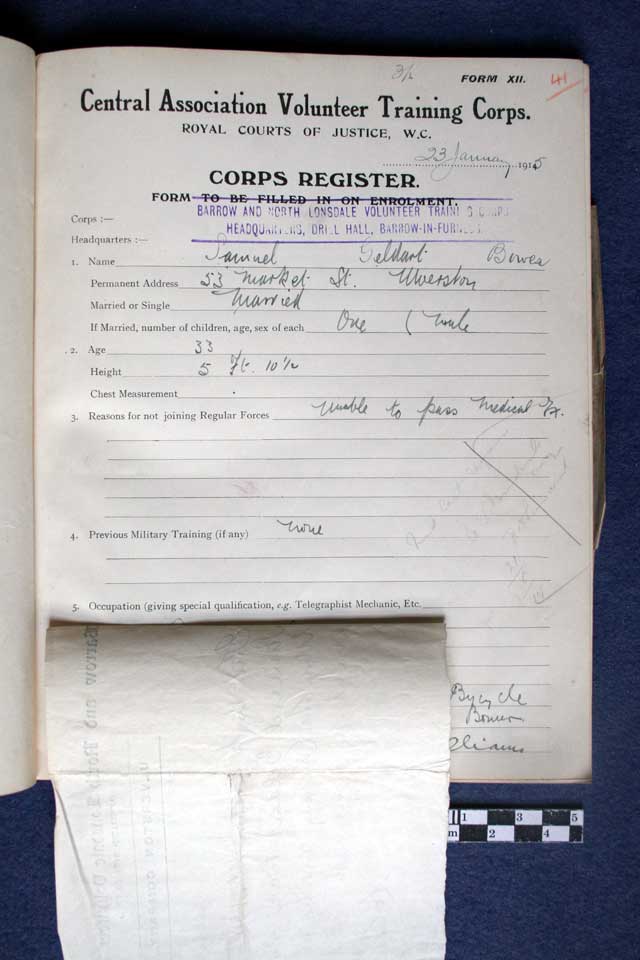 3/2
FORM XII.
41
Central Association Volunteer Training Corps.
ROYAL COURTS OF JUSTICE, W.C.
23 January 1915
CORPS REGISTER.
FORM TO BE FILLED IN ON ENROLMENT.
Corps :—
BARROW AND NORTH LONSDALE VOLUNTEER TRAINING CORPS
Headquarters :—
HEADQUARTERS, DRILL HALL, BARROW-IN-FURNESS.
1. Name Samuel Geldart Bower
Permanent Address 53 Market St. Ulverston
Married or Single Married
If Married, number of children, age, sex of each One (Male
2. Age 33
Height 5 Ft. 10 1/2
Chest Measurement
3. Reasons for not joining Regular Forces Unable to pass Medical Ex.
4. Previous Military Training (if any) None
5. Occupation (giving special qualification, e.g. Telegraphist Mechanic, Etc.
Bycycle
Bower
lliams
1 3 5
m 2 4